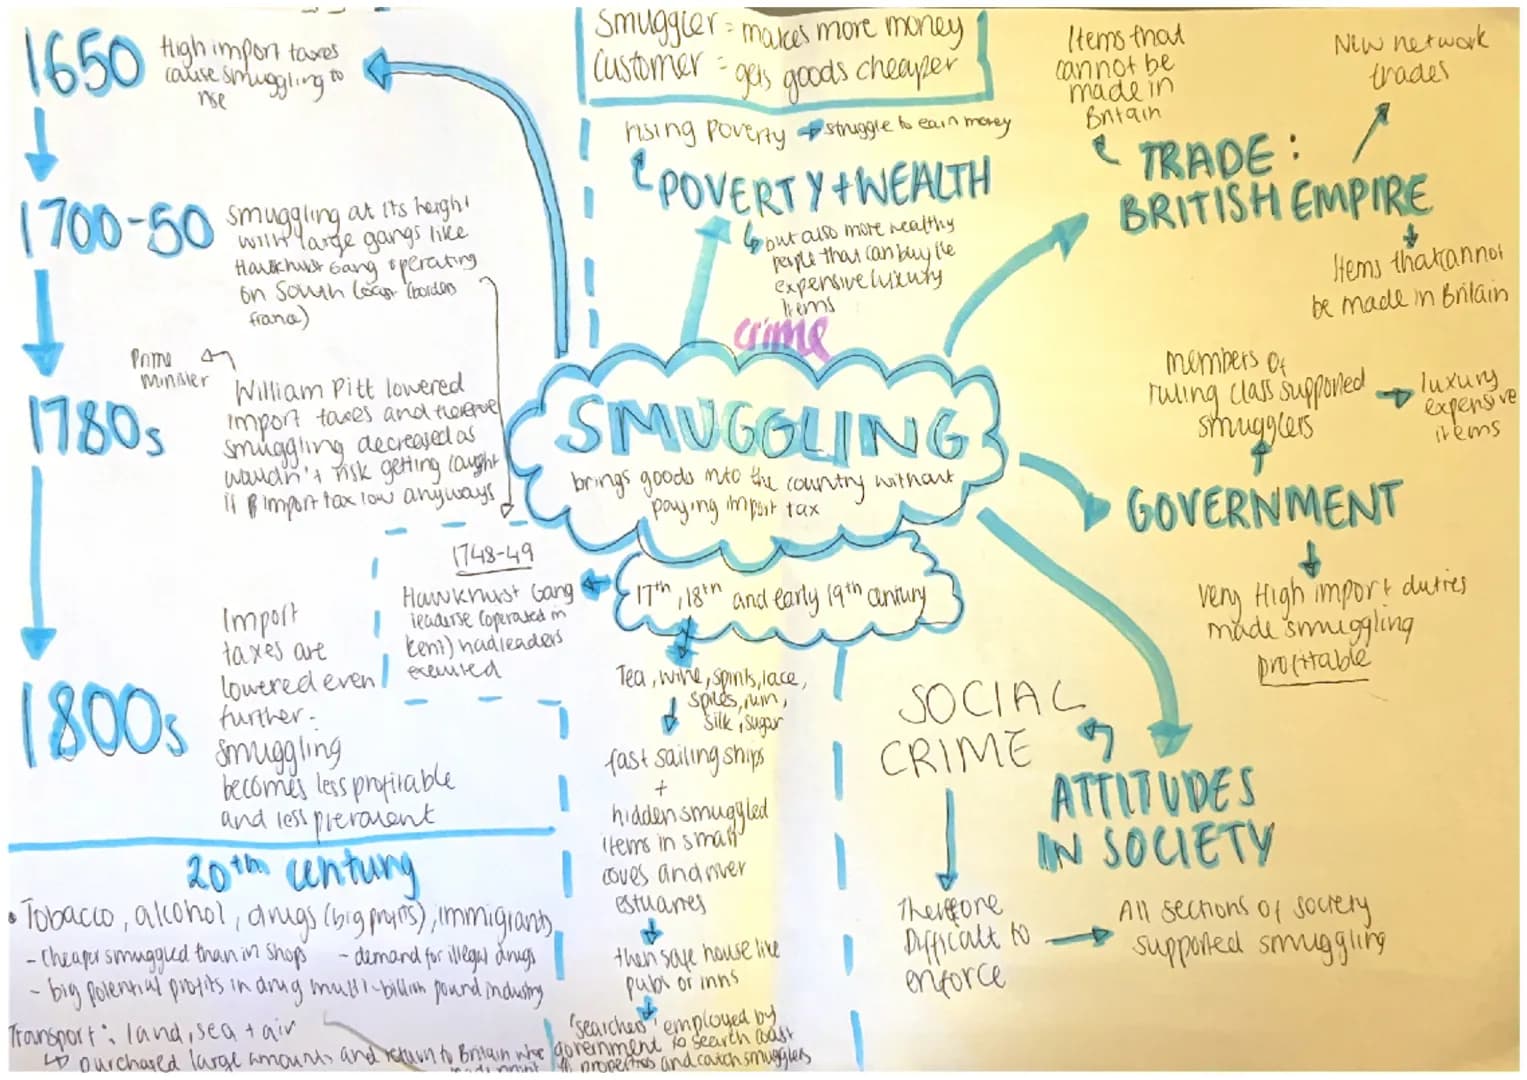 1650
High import taxes
cause smuggling to
rise
1700-50
smuggling at its height
with large gangs like
Hawkhurst Gang operating
on South Coast (borders
france)
Prime
Minister
1780s
William Pitt lowered
import taxes and therefore
smuggling decreased as
wouldn't risk getting caught
if import tax low anyways
1748-49
Hawkhurst Gang
leaderse (operated in
kent) had leaders
executed
1800s
Import
taxes are
lowered even
further.
smuggling
becomes less profitable
and less prevalent
20th century
• Tobacco, alcohol, drugs (big profits), immigrants
- cheaper smuggled than in shops - demand for illegal drugs
- big potential profits in drug multi-billion pound industry
Transport: land, sea + air
↳ purchased large amounts and return to Britain
Smuggler = makes more money
Customer = gets goods cheaper
rising poverty → struggle to earn money
POVERTY + WEALTH
but also more wealthy
people that can buy the
expensive luxury
items
crime
SMUGGLING
brings goods into the country without
paying import tax
17th, 18th and early 19th century
Tea, wine, spirits, lace,
spices, rum,
silk, sugar
fast sailing ships
+
hidden smuggled
items in small
coves and river
estuaries
then safe house like
pubs or inns
'searchers' employed by
government to search coast
properties and catch smugglers
Items that
cannot be
made in
Britain
New network
trades
TRADE:
BRITISH EMPIRE
Items that cannot
be made in Britain
members of
ruling class supported
smugglers
luxury
expensive
items
GOVERNMENT
Very High import duties
made smuggling
profitable
SOCIAL
CRIME
ATTITUDES
IN SOCIETY
Therefore
Difficult to
enforce
All sections of society
supported smuggling